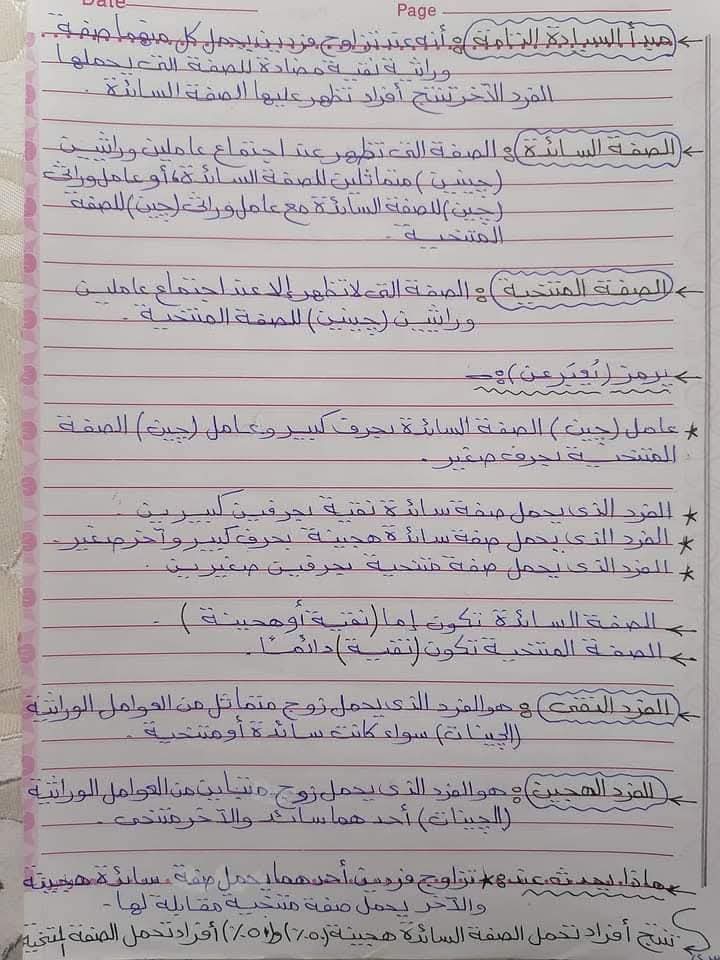 Date
Page
مبدأ السيادة التامة : أنه عند تزاوج فردين يحمل كل منهما صفة
وراثية نقية مضادة للصفة التى يحملها
الفرد الآخر تنتج أفراد تظهر عليها الصفة السائدة .
الصفة السائدة : الصفة التى تظهر عند اجتماع عاملين وراثيين
(جينين) متماثلين للصفة السائدة ، أو عامل وراثى
(جين) للصفة السائدة مع عامل وراثى (جين) للصفة
المتنحية .
الصفة المتنحية : الصفة التى لا تظهر إلا عند اجتماع عاملين
وراثيين (جينين) للصفة المتنحية .
يرمز (يُعبَر عن) :-
* عامل (جين) الصفة السائدة بحرف كبير وعامل (جين) الصفة
المتنحية بحرف صغير .
* الفرد الذى يحمل صفة سائدة نقية بحرفين كبيرين .
* الفرد الذى يحمل صفة سائدة هجينة بحرف كبير وآخر صغير .
* الفرد الذى يحمل صفة متنحية بحرفين صغيرين .
الصفة السائدة تكون إما (نقية أو هجينة) .
الصفة المتنحية تكون (نقية) دائمًا .
الفرد النقى : هو الفرد الذى يحمل زوج متماثل من العوامل الوراثية
(الجينات) سواء كانت سائدة أو متنحية .
الفرد الهجين : هو الفرد الذى يحمل زوج متباين من العوامل الوراثية
(الجينات) أحدهما سائد والآخر متنحى .
ماذا يحدث عند : * تزاوج فردين أحدهما يحمل صفة سائدة هجينة
والآخر يحمل صفة متنحية مقابلة لها .
تنتج أفراد تحمل الصفة السائدة هجينة (٥٠٪) و(٥٠٪) أفراد تحمل الصفة المتنحية